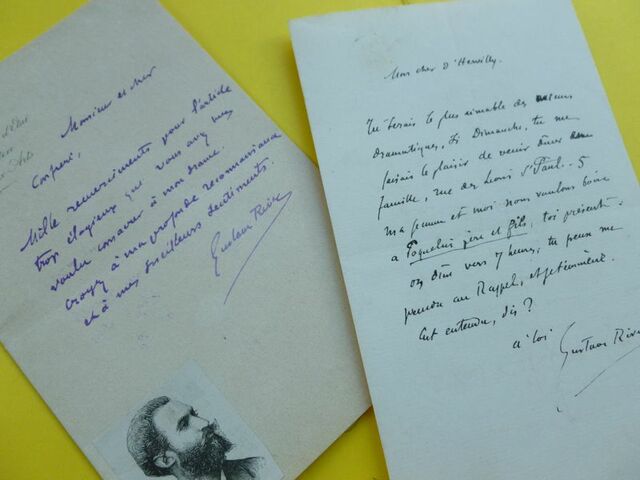 d'État
Arts
Monsieur et cher
Confrère,
Mille remerciements pour l'article
trop élogieux que vous avez bien
voulu consacrer à mon drame.
Croyez à ma profonde reconnaissance
et à mes meilleurs sentiments.
Gustave Rivet
Mon cher d'Hervilly,
Tu serais le plus aimable des
dramatiques, si Dimanche, tu me
faisais le plaisir de venir dîner en
famille, rue des Lions St Paul. 5
ma femme et moi nous voulons boire
à Poquelin père et fils, toi présent.
On dîne vers 7 heures, tu peux me
prendre au Rappel, et je t'emmène.
C'est entendu, dis ?
à toi
Gustave Rivet